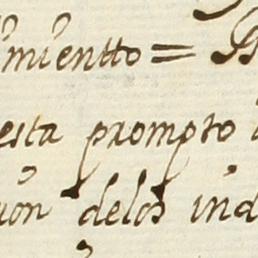 imientto =
esta prompto
ion delos ind